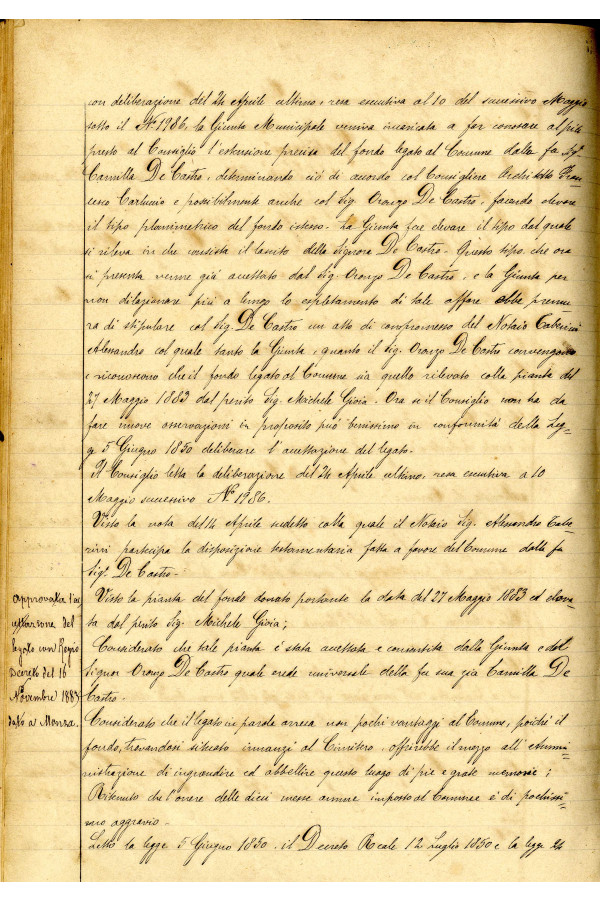 con deliberazione del 24 Aprile ultimo, resa esecutiva al 10 del successivo Maggio
sotto il N.º 1986, la Giunta Municipale veniva incaricata a far conoscere al più
presto al Consiglio l'estensione precisa del fondo legato al Comune dalla fu Sig.ª
Camilla De Castro, determinando ciò di accordo col Consigliere Architetto Fran-
cesco Carluccio e possibilmente anche col Sig. Oronzo De Castro, facendo elevare
il tipo planimetrico del fondo istesso. La Giunta fece elevare il tipo dal quale
si rileva in che consista il lascito della Signora De Castro. Questo tipo che ora
si presenta venne già accettato dal Sig. Oronzo De Castro, e la Giunta per
non dilazionare più a lungo lo espletamento di tale affare ebbe premu-
ra di stipulare col Sig. De Castro un atto di compromesso del Notaio
Alessandro col quale tanto la Giunta, quanto il Sig. Oronzo De Castro convengono
e riconoscono che il fondo legato al Comune sia quello rilevato colla pianta del
27 Maggio 1883 dal perito Sig. Michele Gioia. Ora se il Consiglio non ha da
fare nuove osservazioni in proposito può benissimo in conformità della Leg-
ge 5 Giugno 1850 deliberare l'accettazione del legato.
Il Consiglio letta la deliberazione del 24 Aprile ultimo, resa esecutiva a 10
Maggio successivo N.º 1986.
Visto la nota del 14 Aprile sudetto colla quale il Notaio Sig. Alessandro
partecipa la disposizione testamentaria fatta a favore del Comune dalla fu
Sig.ª De Castro.
Visto la pianta del fondo donato portante la data del 27 Maggio 1883 ed eleva-
ta dal perito Sig. Michele Gioia;
Considerato che tale pianta è stata accettata e consentita dalla Giunta e dal
Signor Oronzo De Castro quale erede universale della fu sua zia Camilla De
Castro.
Considerato che il legato in parola arreca non pochi vantaggi al Comune, poiché il
fondo, trovandosi situato innanzi al Cimitero, offrirebbe il mezzo all'Ammi-
nistrazione di ingrandire ed abbellire questo luogo di pie e grate memorie;
Ritenuto che l'onere delle dieci messe annue imposto al Comune è di pochissi-
mo aggravio.
Letto la legge 5 Giugno 1850. il Decreto Reale 12 Luglio 1850 e la legge 24
Approvata l'ac
cettazione del
legato con Regio
Decreto del 16
Novembre 1883
dato a Monza.